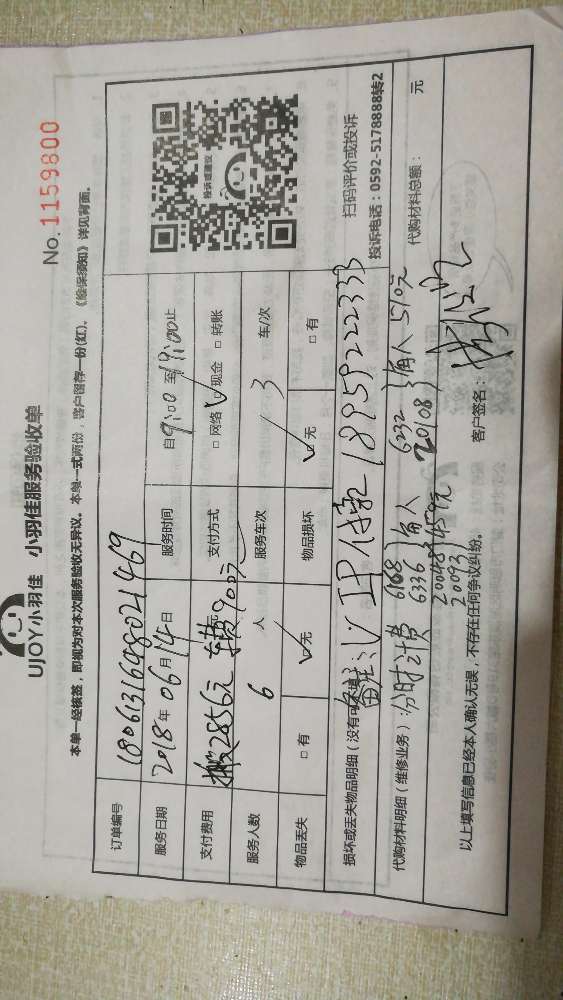 UJOY小羽佳 小羽佳服务验收单
No. 1159800
本单一经核签，即视为对本次服务验收无异议。本单一式两份，客户留存一份(红)。《验保须知》详见背面。
订单编号 1806131698021469
服务日期 2018年06月14日 服务时间 自9:00至19:00止
支付费用 搬家2856元 车费900元 支付方式 □网络 ☑现金 □转账
服务人数 6人 服务车次 3 车/次
物品丢失 □有 ☑无 物品损坏 ☑无 □有
投诉或建议
扫码评价或投诉
投诉电话：0592-5178888转2
损坏或丢失物品明细（没有可不填
备注：VIP付款 18959222333
代购材料明细（维修业务）：分时计费 6168 6336 20048 20093 每人 459元 6232 20108 每人510元 代购材料总额： 元
以上填写信息已经本人确认无误，不存在任何争议纠纷。 客户签名：